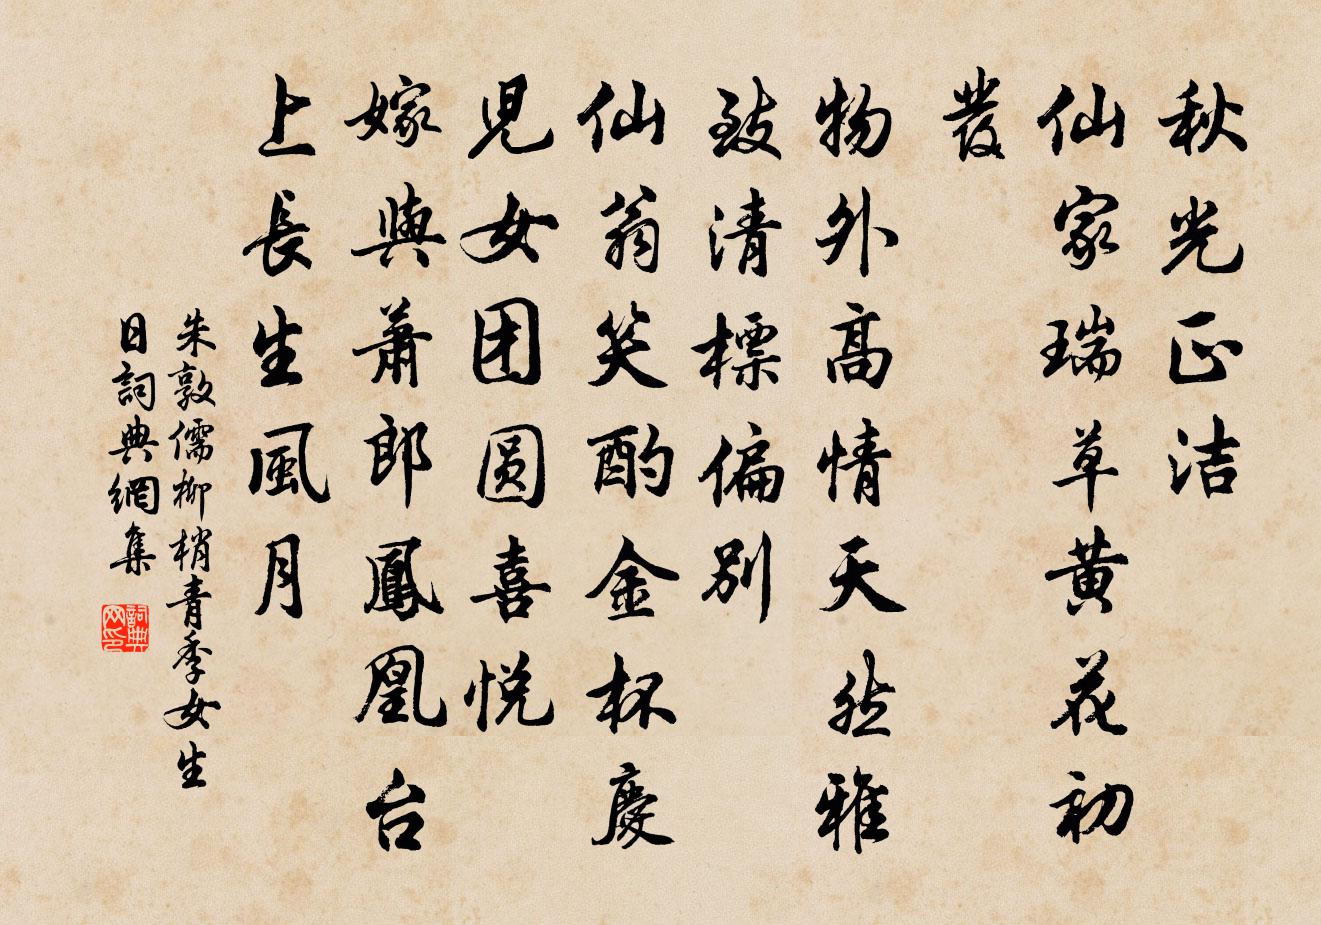 秋光正洁
仙家瑞草黄花初
發
物外高情天然雅
致清標偏別
仙翁笑酌金杯慶
児女团圆喜悦
嫁與蕭郎鳳凰台
上長生風月
朱敦儒柳梢青季女生
日詞典網集
詞典网印